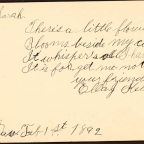 Sarah.
There's a little flow
Blooms beside my co
It whispers
It is forget me not
your friend
Feb 1st 1892